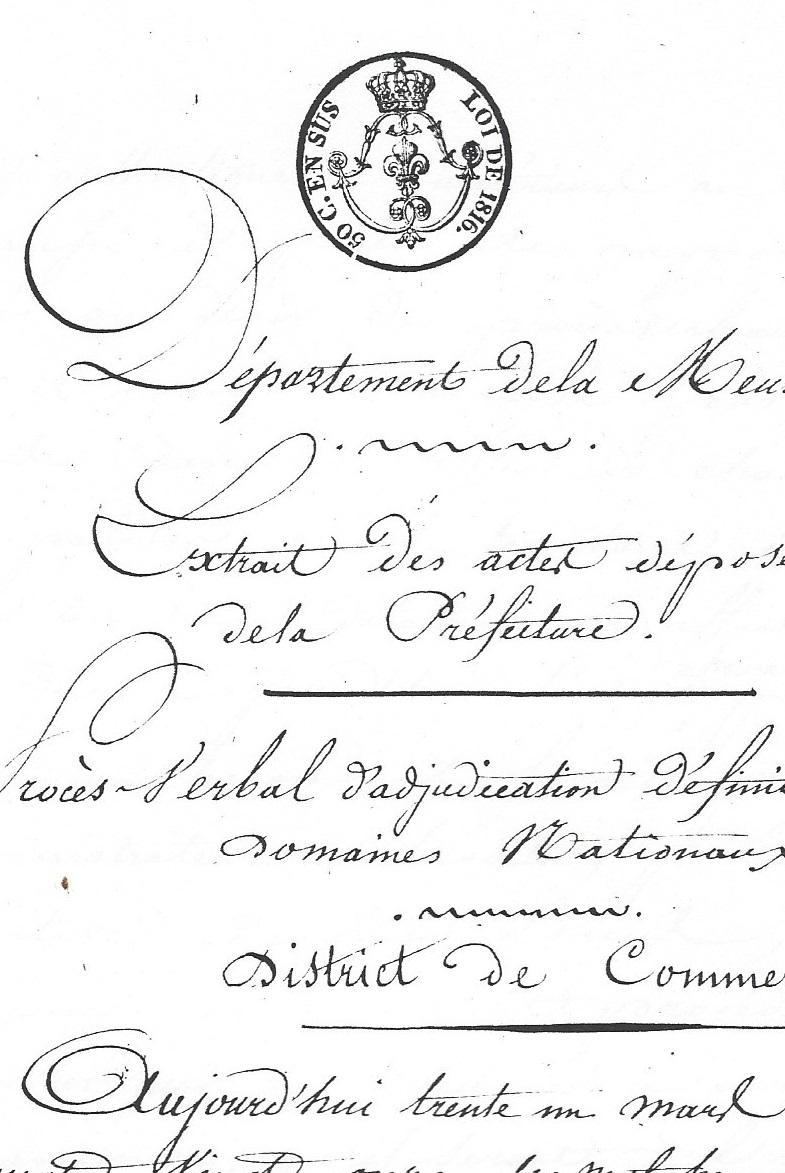 50 C. EN SUS
LOI DE 1816.
Département dela Meu
Extrait des actes dépose
dela Préfecture.
Procès-Verbal d'adjudication défini
Domaines Nationaux
District de Comme
Aujourd'hui trente un mars